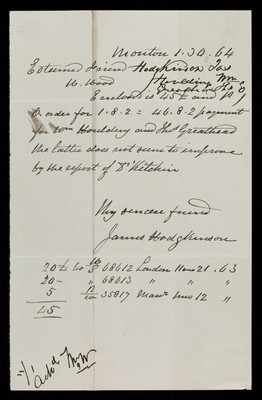 Monton 1.30.64
Esteemed Friend Hodgkinson Jas
W. Wood Houlding Wm
Greathead Ths
Enclosed is 45£ and P O
O order for 1.8.2 = 46.8.2 payment
for Wm Houlding and Ths Greathead
the latter does not seem to improve
by the report of Dr Kitchin
My sincere friend
James Hodgkinson
20£ No 68612 London 11mo 21 . 63
20 - " 68613 " " "
5 35817 Manr 12 "
45
ackd WW